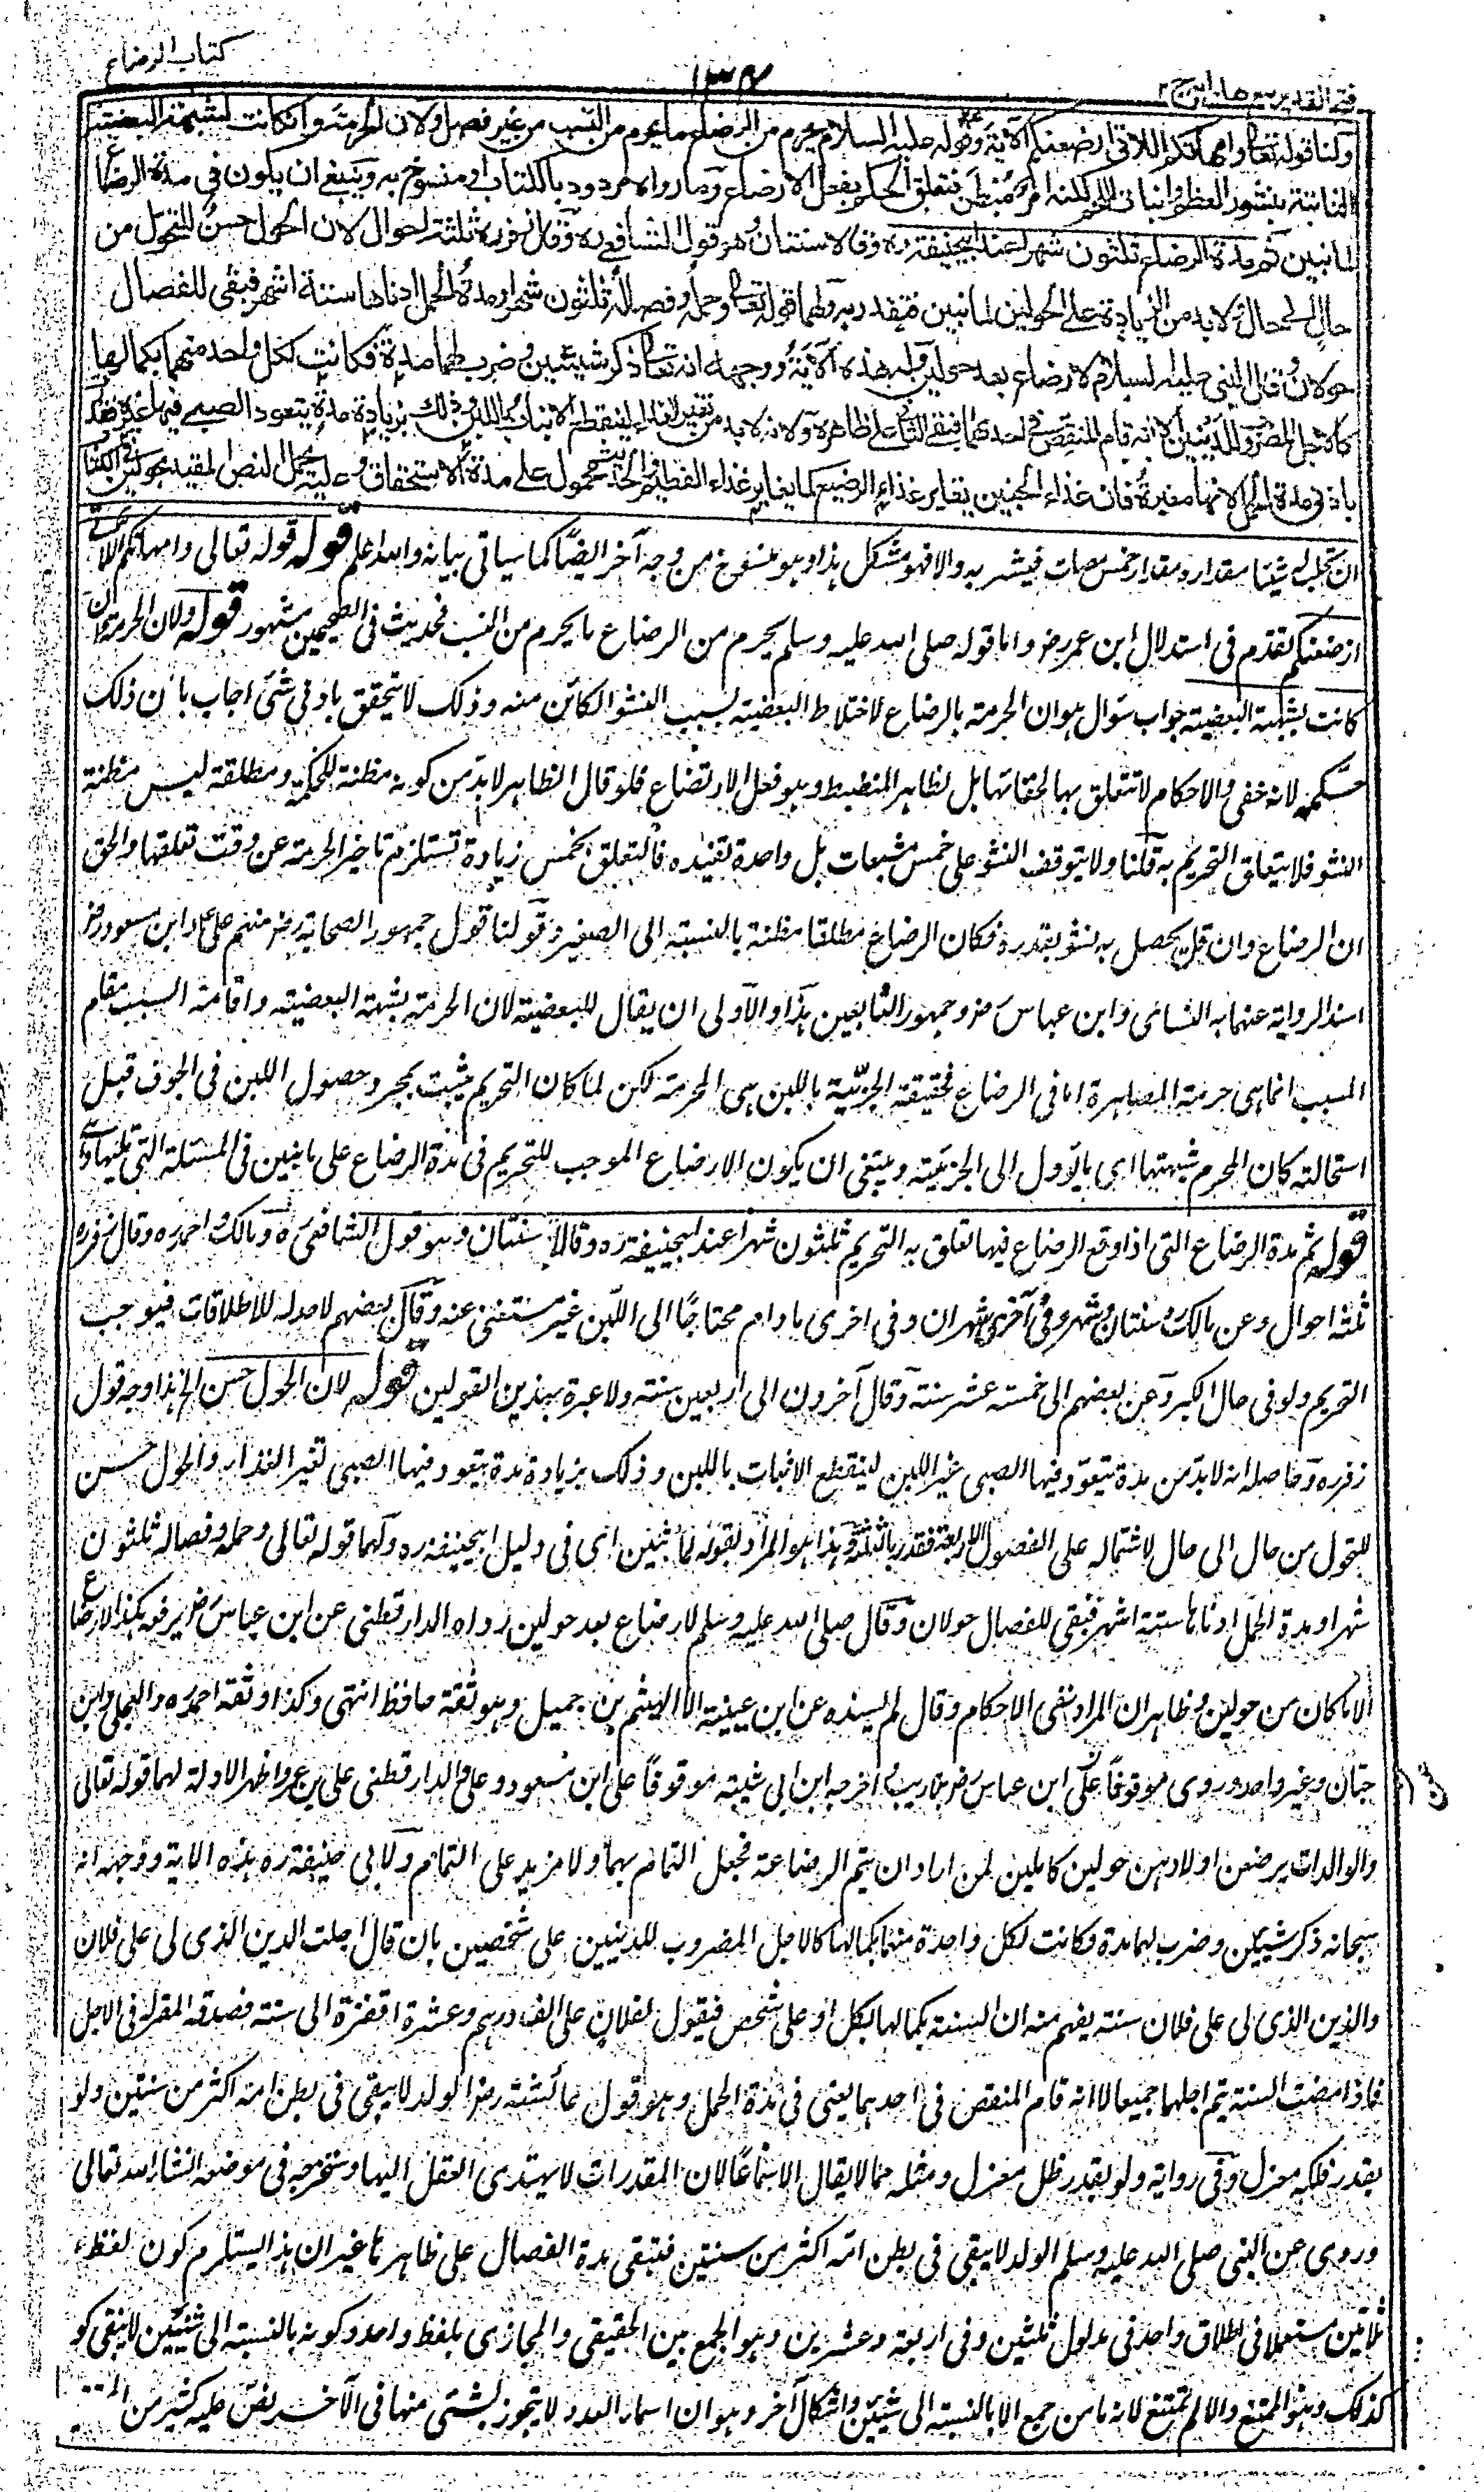 كتاب الرضاع
١٣٤
فتح القدير مع هدايه ج ٢
ولنا قوله تعالى وامهاتكم اللاتي ارضعنكم الآية وقوله عليه السلام يحرم من الرضاع ما يحرم من النسب من غير فصل ولان الحرمة وان كانت لشبهة البعضية
الثابتة بنشور العظم وانبات اللحم لكنه امر مبطن فتعلق الحكم بفعل الارضاع وما رواه مردود بالكتاب او منسوخ به وينبغي ان يكون في مدة الرضاع
لما نبين ثم مدة الرضاع ثلثون شهرا عند ابيحنيفة ره وقالا سنتان وهو قول الشافعي ره وقال زفر ره ثلثة احوال لان الحول حسن للتحول من
حال الى حال ولا بد من الزيادة على الحولين لما نبين فتقدر به ولهما قوله تعالى وحمله وفصاله ثلثون شهرا ومدة الحمل ادناها ستة اشهر فبقى للفصال
حولان وقال النبي عليه السلام لا رضاع بعد حولين وله هذه الآية ووجهه انه تعالى ذكر شيئين وضرب لهما مدة فكانت لكل واحد منهما بكمالها
كالاجل المضروب للدينين الا انه قام المنقص في احدهما فبقى الثاني على ظاهره ولانه لا بد من تغير الغذاء لينقطع الانبات باللبن وذلك بزيادة مدة يتعود الصبي فيها غيره فقدرت
بادنى مدة الحمل لانها مغيرة فان غذاء الجنين يغاير غذاء الرضيع كما يغاير غذاء الفطيم والحديث محمول على مدة الاستحقاق وعليه يحمل النص المقيد بحولين في الكتاب
ان تحلب له شيئا مقداره مقدار خمس مصات فيشربه والا فهو مشكل هذا وهو منسوخ من وجه آخر ايضا كما سياتي بيانه والله اعلم قوله قوله تعالى وامهاتكم اللاتي
ارضعنكم تقدم في استدلال ابن عمر رض واما قوله صلى الله عليه وسلم يحرم من الرضاع ما يحرم من النسب فحديث في الصحيحين مشهور قوله ولان الحرمة وان
كانت بشبهة البعضية جواب سؤال هو ان الحرمة بالرضاع لاختلاط البعضية بسبب النشو الكائن منه وذلك لا يتحقق بادنى شئ اجاب بان ذلك
حكمه لانه خفي والاحكام لا تتعلق بها لخفائها بل لظاهر المنضبط وهو فعل الارتضاع فلو قال الظاهر لا بد من كونه مظنة للحكمة ومطلقه ليس مظنة
النشو فلا يتعلق التحريم به قلنا ولا يتوقف النشو على خمس مشبعات بل واحدة تفيده فالتعلق بخمس زيادة تستلزم تاخير الحرمة عن وقت تعلقها والحق
ان الرضاع وان قل يحصل به نشو بقدره فكان الرضاع مطلقا مظنة بالنسبة الى الصغير وقولنا قول جمهور الصحابة رض منهم علي وابن مسعود رض
اسند الرواية عنهما به النسائي وابن عباس رض وجمهور التابعين هذا والاولى ان يقال للبعضية لان الحرمة بشبهة البعضية واقامة السبب مقام
المسبب انما هي حرمة المصاهرة اما في الرضاع فحقيقة الجزئية باللبن هي المحرمة لكن لما كان التحريم يثبت بمجرد حصول اللبن في الجوف قبل
استحالته كان المحرم شبهتها اى بايؤول الى الجزئية وينبغي ان يكون الارضاع الموجب للتحريم في مدة الرضاع على ما نبين في المسئلة التي تليها
قوله ثم مدة الرضاع التي اذا وقع الرضاع فيها تعلق به التحريم ثلثون شهرا عند ابيحنيفة ره وقالا سنتان وهو قول الشافعي ره ومالك احمد ره وقال زفر ره
ثلثة احوال وعن مالك سنتان وشهر وفي اخرى شهران وفي اخرى ما دام محتاجا الى اللبن غير مستغنى عنه وقال بعضهم لا حد له للاطلاقات فيوجب
التحريم ولو في حال الكبر وعن بعضهم الى خمسة عشر سنة وقال آخرون الى اربعين سنة ولا عبرة بهذين القولين قوله لان الحول حسن الخ هذا وجه قول
زفر ره وحاصله انه لا بد من مدة يتعود فيها الصبي غير اللبن لينقطع الانبات باللبن وذلك بزيادة مدة يتعود فيها الصبي تغير الغذاء والحول حسن
للتحول من حال الى حال لاشتماله على الفصول الاربعة فقدر بالثلثة وهذا هو المراد بقوله لما نبين اى في دليل ابيحنيفة ره ولهما قوله تعالى وحمله وفصاله ثلثون
شهرا ومدة الحمل ادناها ستة اشهر فبقى للفصال حولان وقال صلى الله عليه وسلم لا رضاع بعد حولين رواه الدارقطني عن ابن عباس رض يرفعه هكذا لا رضاع
الا ما كان من حولين وظاهر ان المراد نفي الاحكام وقال لم يسنده عن ابن عيينة الا الهيثم بن جميل وهو ثقة حافظ انتهى وكذا وثقه احمد ره والعجلي وابن
حبان وغير واحد وروى موقوفا على ابن عباس رض اخرجه ابن ابي شيبه موقوفا على ابن مسعود وعلى والدارقطني على بن عمر واظهر الادلة لهما قوله تعالى
والوالدات يرضعن اولادهن حولين كاملين لمن اراد ان يتم الرضاعة فجعل التمام بهما ولا مزيد على التمام ولابي حنيفة ره هذه الآية ووجهه انه
سبحانه ذكر شيئين وضرب لهما مدة فكانت لكل واحدة منهما بكمالها كالاجل المضروب للدينين على شخصين بان قال اجلت الدين الذى لى على فلان
والدين الذى لى على فلان سنة يفهم منه ان السنة بكمالها لكل او على شخص فيقول لفلان على الف درهم وعشرة اقفزة الى سنة فصدقه المقر له في الاجل
فاذا مضت السنة يتم اجلهما جميعا الا انه قام المنقص في احدهما يعنى في مدة الحمل وهو قول عائشة رض الولد لا يبقى في بطن امه اكثر من سنتين ولو
بقدر فلكه مغزل وفي رواية ولو بقدر ظل مغزل ومثله مما لا يقال الا سماعا لان المقدرات لا يهتدى العقل اليها وسنخرجه في موضعه انشاء الله تعالى
وروى عن النبي صلى الله عليه وسلم الولد لا يبقى في بطن امه اكثر من سنتين فتبقى مدة الفصال على ظاهرها غير ان هذا يستلزم كون لفظ
ثلاثين مستعملا في اطلاق واحد في مدلول ثلثين وفي اربعة وعشرين وهو الجمع بين الحقيقي والمجازى بلفظ واحد وكونه بالنسبة الى شيئين لا ينفى كونه
كذلك وهو الممتنع والا لم يمتنع لانه ما من جمع الا بالنسبة الى شيئين واشكال آخر وهو ان اسماء العدد لا يتجوز بشئ منها في الآخر نص عليه كثير من